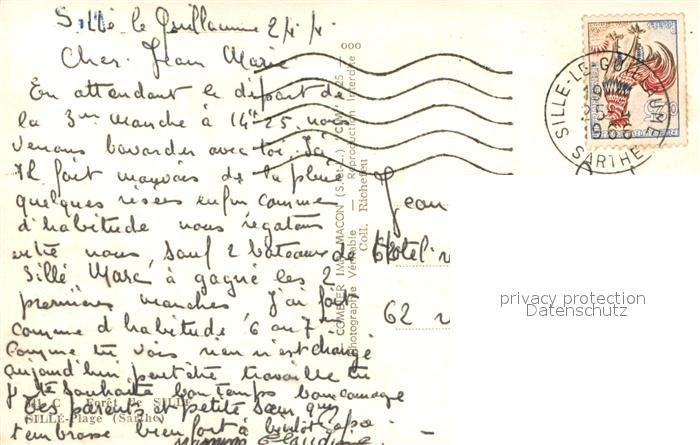 Sillé le Guillaume 2/4/
Cher Jean Marie
En attendant le départ de
la 3me manche à 14h25 nous
venons bavarder avec toi. Ici
Il fait mauvais de la pluie
quelques risées enfin comme
d'habitude nous régatons
entre nous, sauf 2 bateaux de
Sillé Marc à gagné les 2
premières manches J'ai fait
comme d'habitude 6 ou 7
Comme tu vois rien n'est changé
aujourd'hui peut être travaille tu
Je te souhaite bon temps bon courage
tes parents et petite sœur
t'embrasse bien fort à bientôt
Claudine
Forêt de SILLÉ
SILLÉ-Plage (Sarthe)
COMBIER IMP. MACON (S.-et-L.)
Photographie Véritable — Reproduction interdite
Coll. Richeteu
Jean
Hôtel
62
SILLE-LE-GUILLAUME
SARTHE
privacy protection
Datenschutz